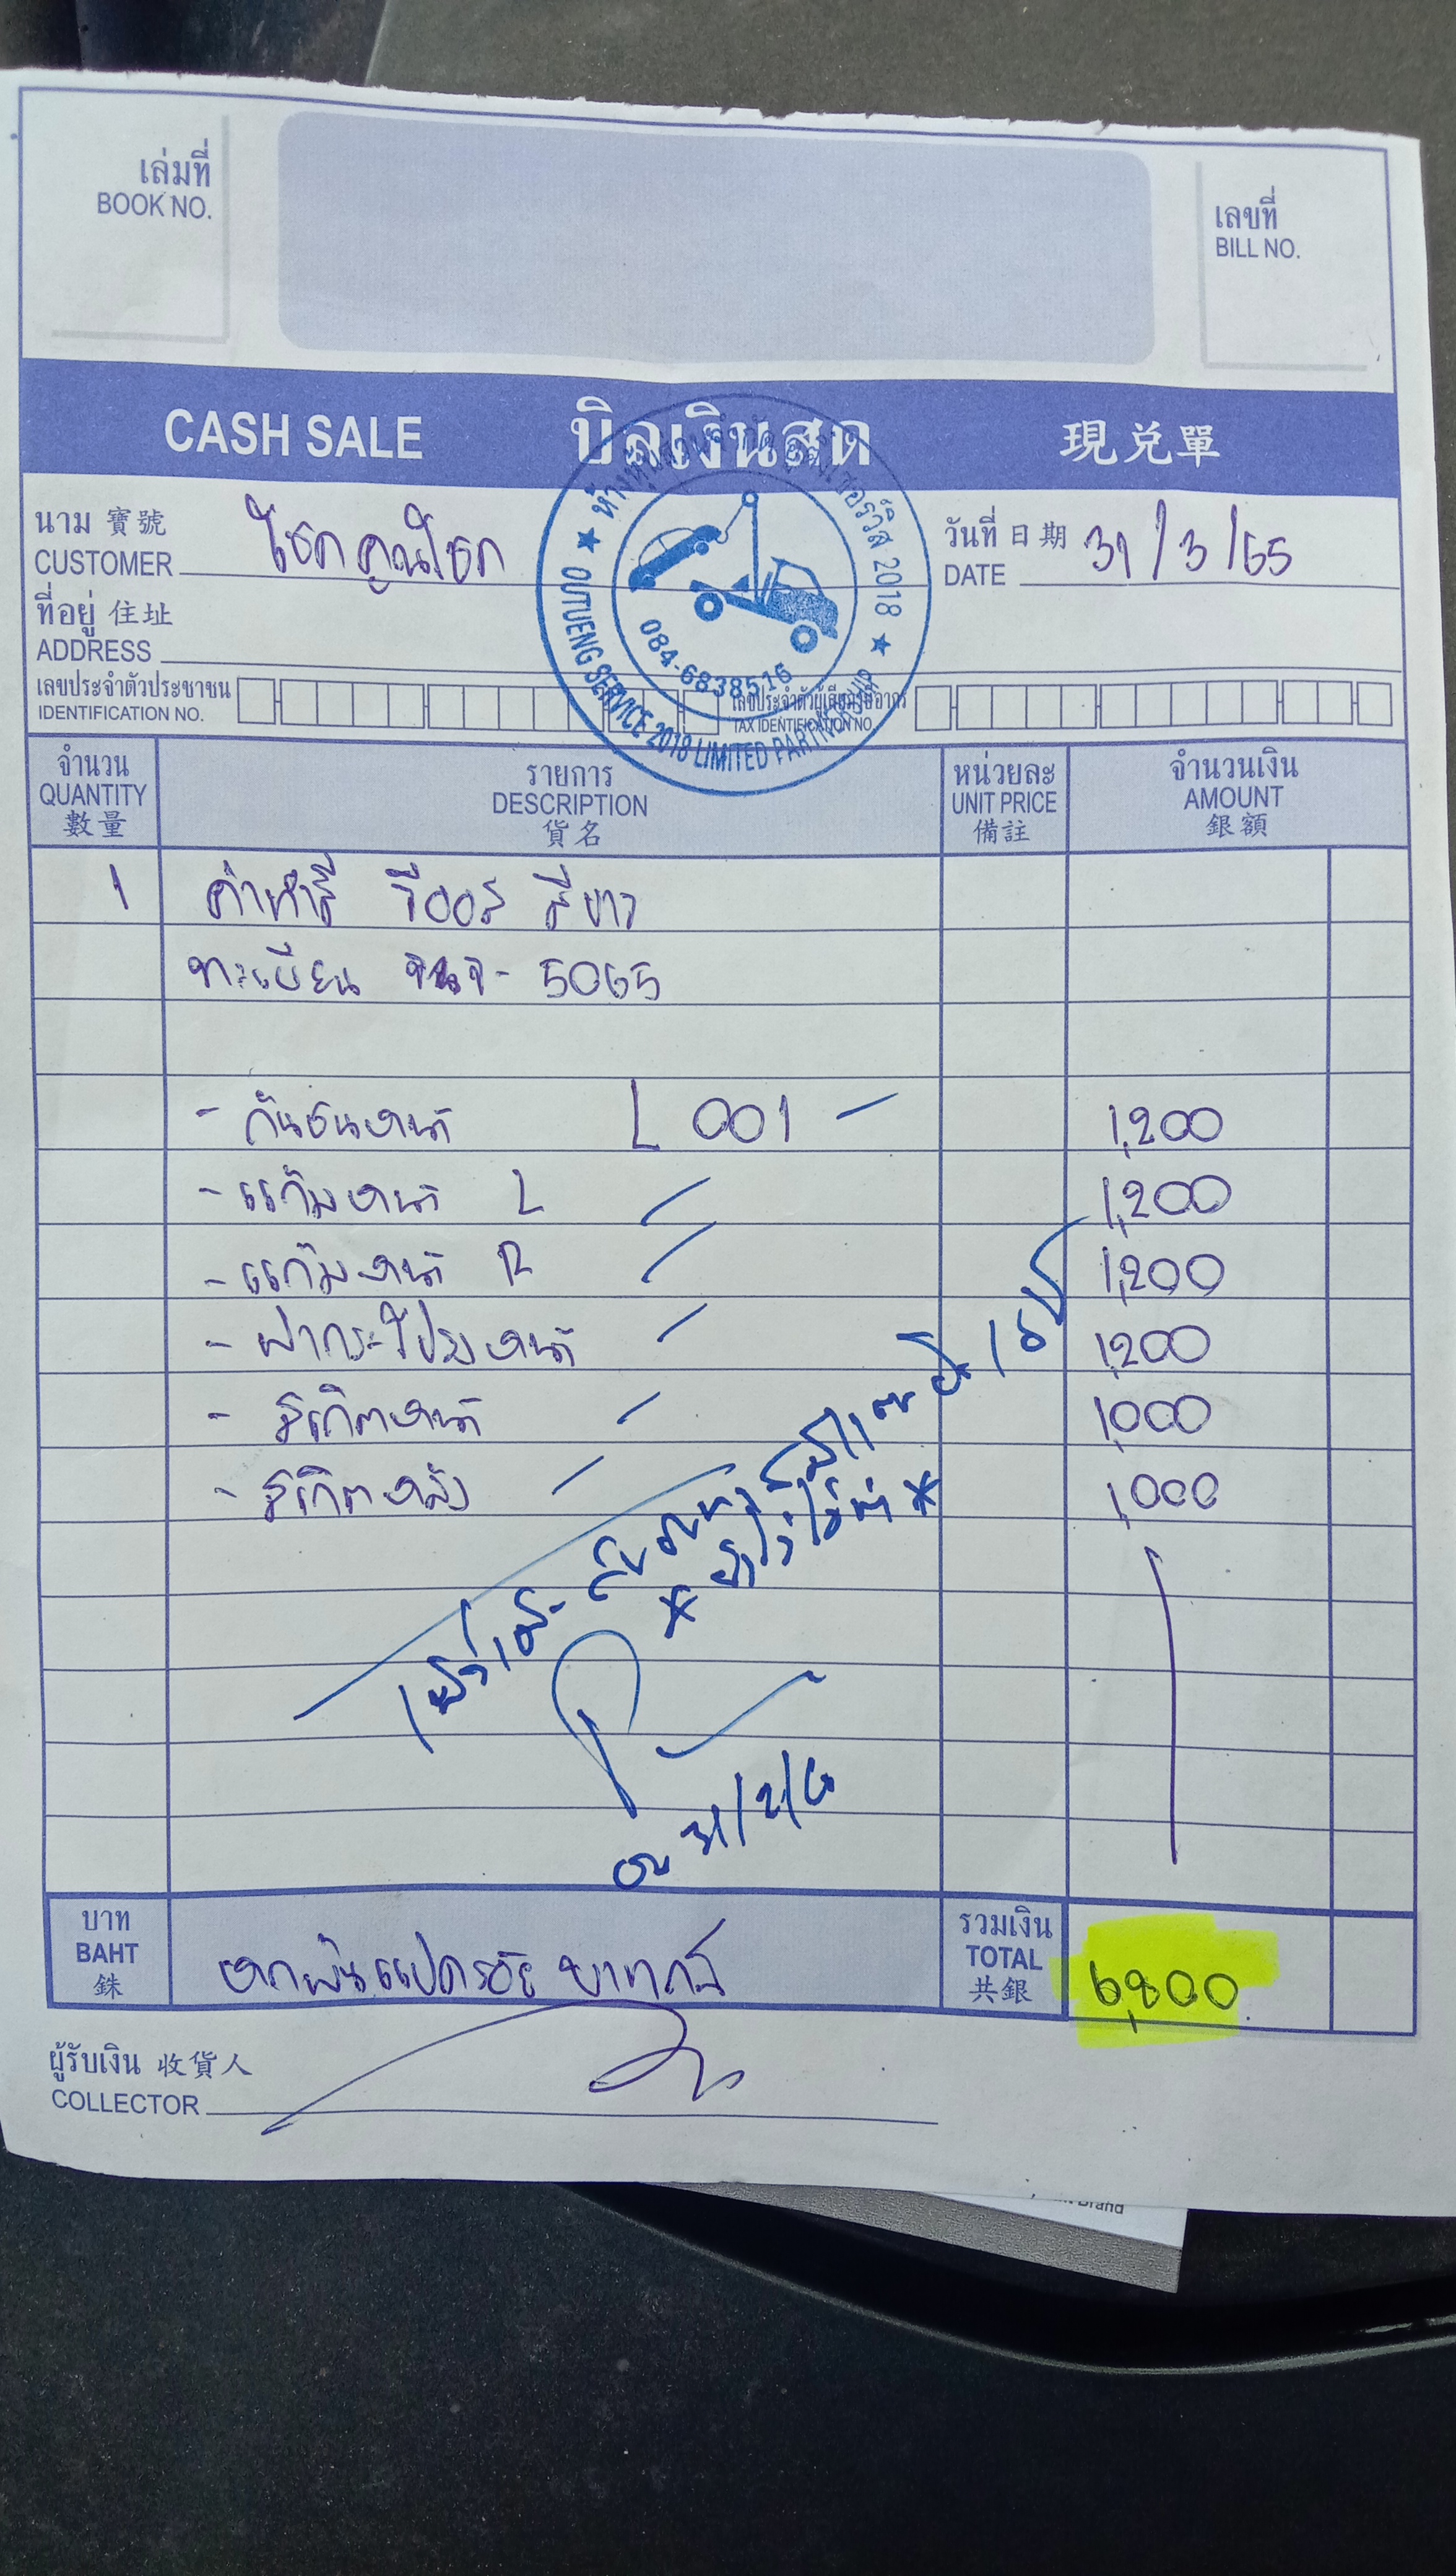 เล่มที่
BOOK NO.
เลขที่
BILL NO.
CASH SALE บิลเงินสด 現兌單
นาม 寶號
CUSTOMER โชคคูณโชค
วันที่ 日期
DATE 31/3/65
ที่อยู่ 住址
ADDRESS
เลขประจำตัวประชาชน
IDENTIFICATION NO.
เลขประจำตัวผู้เสียภาษีอากร
TAX IDENTIFICATION NO.
ห้างหุ้นส่วนจำกัด เซอร์วิส 2018
OUTUENG SERVICE 2018 LIMITED PARTNERSHIP
084-6838516
จำนวน
QUANTITY
數量
รายการ
DESCRIPTION
貨名
หน่วยละ
UNIT PRICE
備註
จำนวนเงิน
AMOUNT
銀額
1 ค่าทำสี วีออส สีขาว
ทะเบียน - 5065
- กันชนหน้า L 001 - 1,200
- แก้มหน้า L 1,200
- แก้มหน้า R 1,200
- ฝากระโปรงหน้า 1,200
- สเกิตหน้า 1,000
- สเกิตหลัง 1,000
บาท
BAHT
銖
หกพันแปดร้อยบาทถ้วน
รวมเงิน
TOTAL
共銀
6,800
ผู้รับเงิน 收貨人
COLLECTOR
Brand